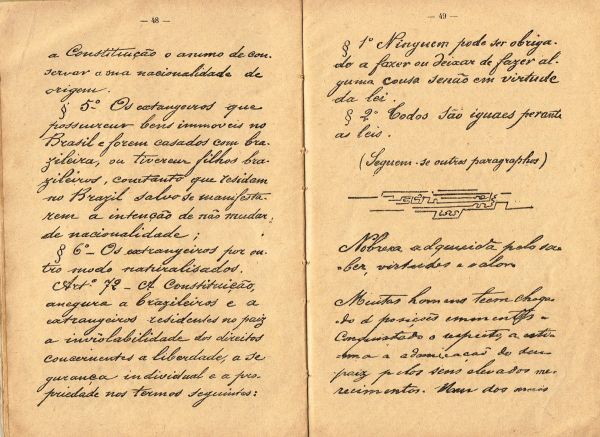 — 48 —
a Constituição o animo de con-
servar a sua nacionalidade de
origem.
§ 5º Os extrangeiros que
possuirem bens immoveis no
Brasil e forem casados com bra-
zileira, ou tiverem filhos bra-
zileiros, comtanto que residam
no Brazil salvo se manifesta-
rem a intenção de não mudar
de nacionalidade;
§ 6º – Os extrangeiros por ou-
tro modo naturalisados.
Artº 72 – A Constituição,
assegura a brazileiros e a
extrangeiros residentes no paiz
a inviolabilidade dos direitos
concernentes a liberdade, a se
gurança individual e a pro-
priedade nos termos seguintes:
— 49 —
§ 1º Ninguem pode ser obriga-
do a fazer ou deixar de fazer al-
guma cousa senão em virtude
da lei.
§ 2º Todos são iguaes perante
as leis.
(Seguem-se outros paragraphos)
Nobreza adquirida pelo sa-
ber, virtudes e valor
Muitos homens teem chega-
do á posições imminentes e
conquistado o respeito, a esti-
ma e a admiração do seu
paiz pelos seus elevados me-
recimentos. Um dos mais